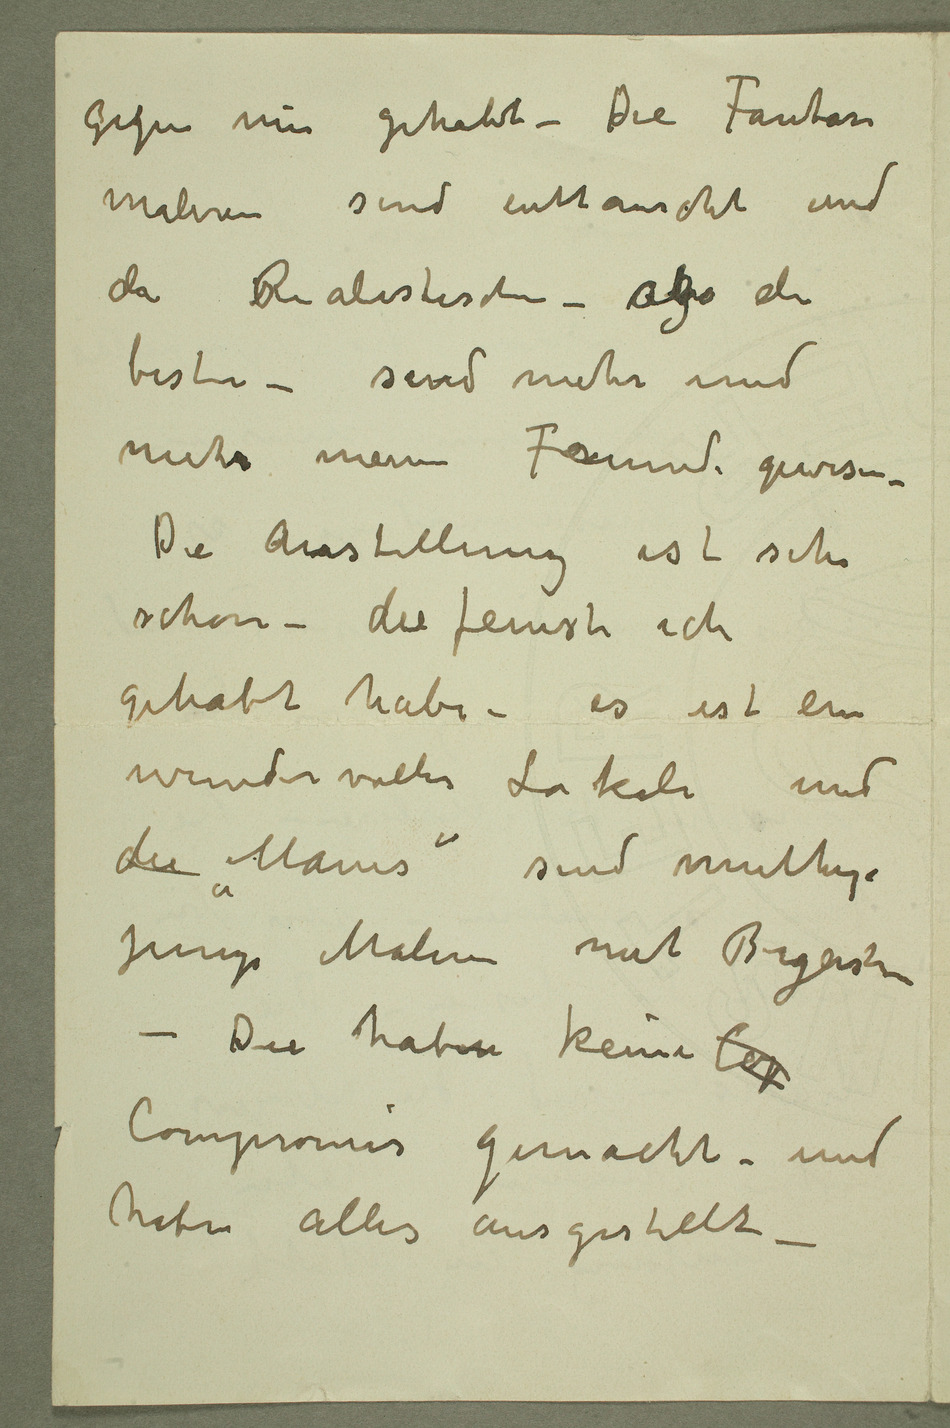 gegen mir gehabt – Die Fantasi
maleren sind enttauscht und
die Realistischen – also die
besten – sind mehr und
mehr meine Freunde gewesen –
Die Ausstellung ist sehr
schön – die feinste ich
gehabt habe – es ist ein
wundervolles Lokale und
die „Manes" sind muthige
junge Maleren mit Begeistr
– Die haben keine
Compromis gemacht – und
haben alles ausgestellt –